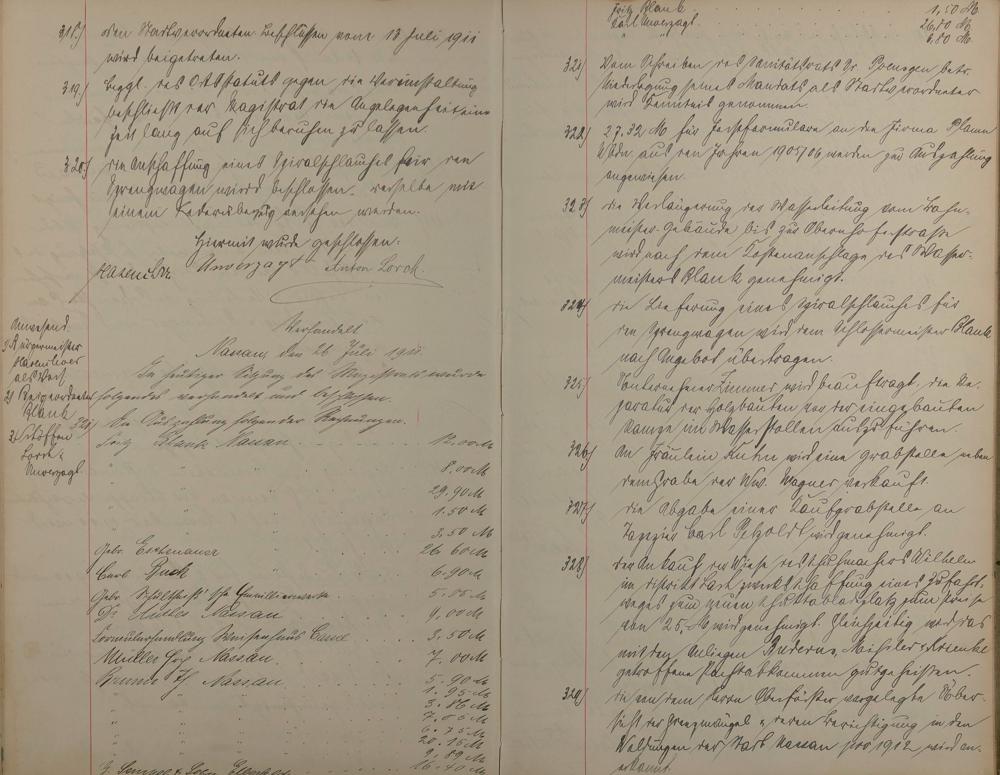 318) den Stadtverordneten Beschlüssen vom 13 Juli 1911
wird beigetreten.
319) Bezgl. des Ortsstatuts gegen die Verunstaltung
beschließt der Magistrat die Angelegenheit eine
Zeit lang auf sich beruhen zu lassen.
320) die Anschaffung eines Spiralschlauches für den
Sprengwagen wird beschlossen. derselbe mit
einem Lederüberzug versehen werden.
Hiermit wurde geschlossen:
Hasenclever Unverzagt Anton Lorch
Verhandelt
Nassau, den 26 Juli 1911.
Anwesend
1) Bürgermeister
Hasenclever
als Vors.
2) Beigeordneter
Blank
3)
Lorch
Unverzagt
In heutiger Sitzung des Magistrats wurde
folgendes verhandelt und beschlossen.
321) Die Auszahlung folgender Rechnungen.
Fritz Blank Nassau 12.00 M
" 8.00 M
" 29.90 M
" 1.50 M
" 3.50 M
Gebr. 26 60 M
Carl Buch 6.90 M
Gebr. 5.05 M
Dr. Nassau 9,00 M
Formularhandlung Waisenhaus Cassel 3.50 M
Müller Nassau. 7.00 M
Nassau 5.90 M
" 1.95 M
" 3.86 M
" 7.00 M
" 6.75 M
" 20.15 M
" 16.40 M
Fritz Blank 1,50 M
Carl Unverzagt 26,80 M
" 6,80 M
321) Vom Schreiben des Sanitätsrats Dr. Poensgen betr.
Niederlegung seines Mandats als Stadtverordneter
wird Kenntnis genommen.
322) 27.32 M für Formulare an die Firma
aus den Jahren 1905/06 werden zur Auszahlung
angewiesen.
323) die Verlängerung der Wasserleitung vom Bahn-
meister-Gebäude bis zur Obernhoferstrasse
wird nach dem Kostenanschlage des Wasser-
meisters Blank genehmigt.
324) die Lieferung eines Spiralschlauches für
den Sprengwagen wird dem Schlossermeister Blank
nach Angebot übertragen.
325) Unternehmer Zimmer wird beauftragt die Re-
paratur der Holzbauten vor der eingebauten
im Wasserstollen auszuführen.
326) An Fräulein Kuhn wird eine Grabstelle neben
dem Grabe der Ww. Wagner verkauft.
327) die Abgabe einer Kaufgrabstelle an
Carl Petzoldt wird genehmigt.
328) der Ankauf der Wiese des Wilhelm
im Distrikt zwecks Schaffung eines Zufahrt-
weges zum neuen Schuttabladeplatz zum Preise
von 25,- M wird genehmigt. Gleichzeitig wird das
mit den Anliegern
getroffene Pachtabkommen gutgeheißen.
329) die von dem Herrn Oberförster vorgelegte Über-
sicht der Grenzmängel u. deren Berichtigung in den
Waldungen der Stadt Nassau pro 1912 wird an-
erkannt.